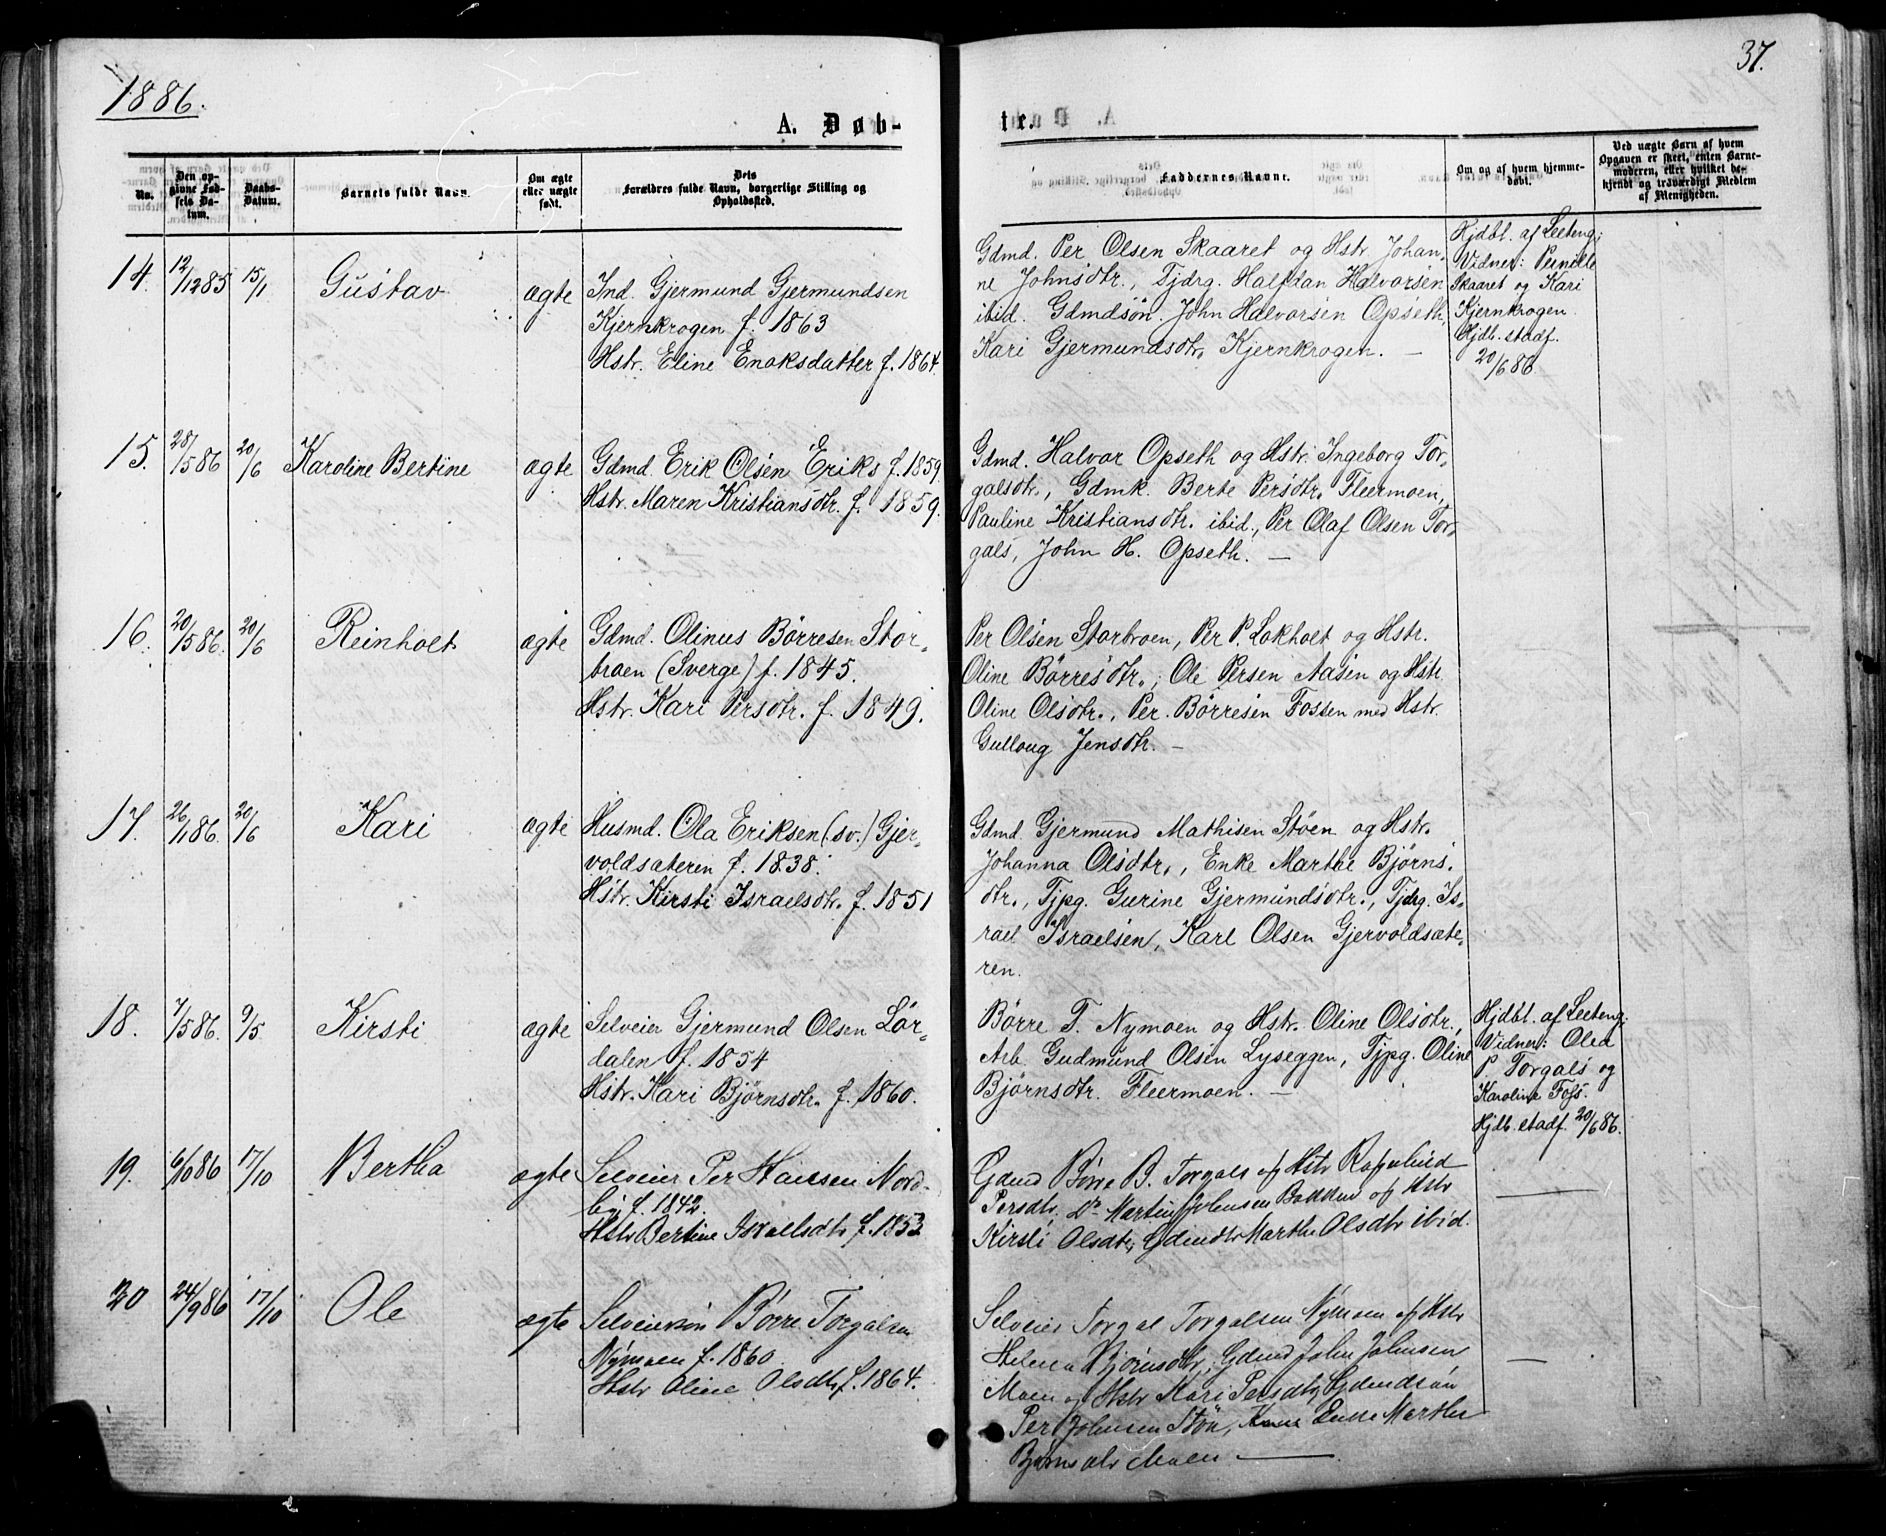 1886.
37.
A. Døb-
tr.
No.
Den op-
givne Fød-
sels Da-
tum.
Daabs-
Datum.
Barnets fulde Navn.
Om ægte
eller uægte
født.
Dets
Forældres fulde Navn, borgerlige Stilling og
Opholdssted.
Faddernes Navne.
Om og af hvem hjemme-
døbt.
Ved uægte Børn af hvem
Opgaven er skeet, enten Barne-
moderen, eller hvilket be-
kjendt og troværdigt Medlem
af Menigheden.
14. 12/1285 15/1 Gustav ægte
Ind. Gjermund Gjermundsen
Kjernkrogen f. 1863
Hstr. Eline Enoksdatter f. 1864.
Gdmd. Per Olsen Skaaret og Hstr. Johan-
ne Johnsdtr., Tjdrg. Halfdan Halvorsen
ibid. Gdmdsön. John Halvorsen Opseth,
Kari Gjermundsdtr. Kjernkrogen. —
Hjdbt. af Leeteng;
Vidner: Pernille
Skaaret og Kari
Kjernkrogen.
Hjdb. stadf.
20/6 86
15. 28/1 86 20/6 Karoline Bertine ægte
Gdmd. Erik Olsen Eriks f. 1859.
Hstr. Maren Kristiansdtr. f. 1859.
Gdmd. Halvor Opseth og Hstr. Ingeborg Tor-
galsdtr., Gdmk. Berte Persdtr. Fleermoen,
Pauline Kristiansdtr. ibid., Per Olaf Olsen Tor-
gals, John H. Opseth. —
16. 20/5 86. 20/6 Reinholt ægte
Gdmd. Olinus Börresen Stor-
broen (Sverge) f. 1845.
Hstr. Kari Persdtr. f. 1849.
Per Olsen Storbroen, Per P. Lokholt og Hstr.
Oline Börresdtr., Ole Persen Aasen og Hstr.
Oline Olsdtr., Per Börresen Fossen med Hstr.
Gulloug Jensdtr. —
17. 26/1 86. 20/6 Kari ægte
Husmd. Ola Eriksen (sv.) Gjer-
voldsæteren f. 1838.
Hstr. Kirsti Israelsdtr. f. 1851
Gdmd. Gjermund Mathisen Stöen og Hstr.
Johanna Olsdtr., Enke Marthe Björns-
dtr., Tjpg. Gurine Gjermundsdtr., Tjdrg. Is-
rael Israelsen, Karl Olsen Gjervoldsæte-
ren.
18. 7/5 86. 9/5 Kirsti ægte
Selveier Gjermund Olsen Lör-
dalen f. 1854
Hstr. Kari Björnsdtr. f. 1860.
Börre T. Nymoen og Hstr. Oline Olsdtr.,
Arb. Gudmund Olsen Lyseggen, Tjpg. Oline
Björnsdtr. Fleermoen. —
Hjdbt. af Leeteng;
Vidner: Olea
P. Torgals og
Karoline Foss.
Hjdb. stadf. 20/6 86.
19. 6/10 86 17/10 Bertha ægte
Selveier Per Hansen Nord-
bÿ f. 1842.
Hstr Bertine Israelsdtr f. 1853
Gdmd Börre B. Torgals og Hstr
Persdtr, Do Martin Johnsen Bakken og Hstr
Kirsti Olsdtr, Gdmdtr Marthe Olsdtr ibid.
20 24/9 86 17/10 Ole ægte
Selveiersön Börre Torgalsen
Nÿmoen f. 1860
Hstr Oline Olsdtr f. 1864.
Selveier Torgal Torgalsen Nÿmoen og Hstr
Helena Björnsdtr, Gdmd John Johnsen
Moen og Hstr Kari Persdtr, Gdmdsön
Per Johnsen Stöa, Enke Marthe
Björnsdtr Moen —